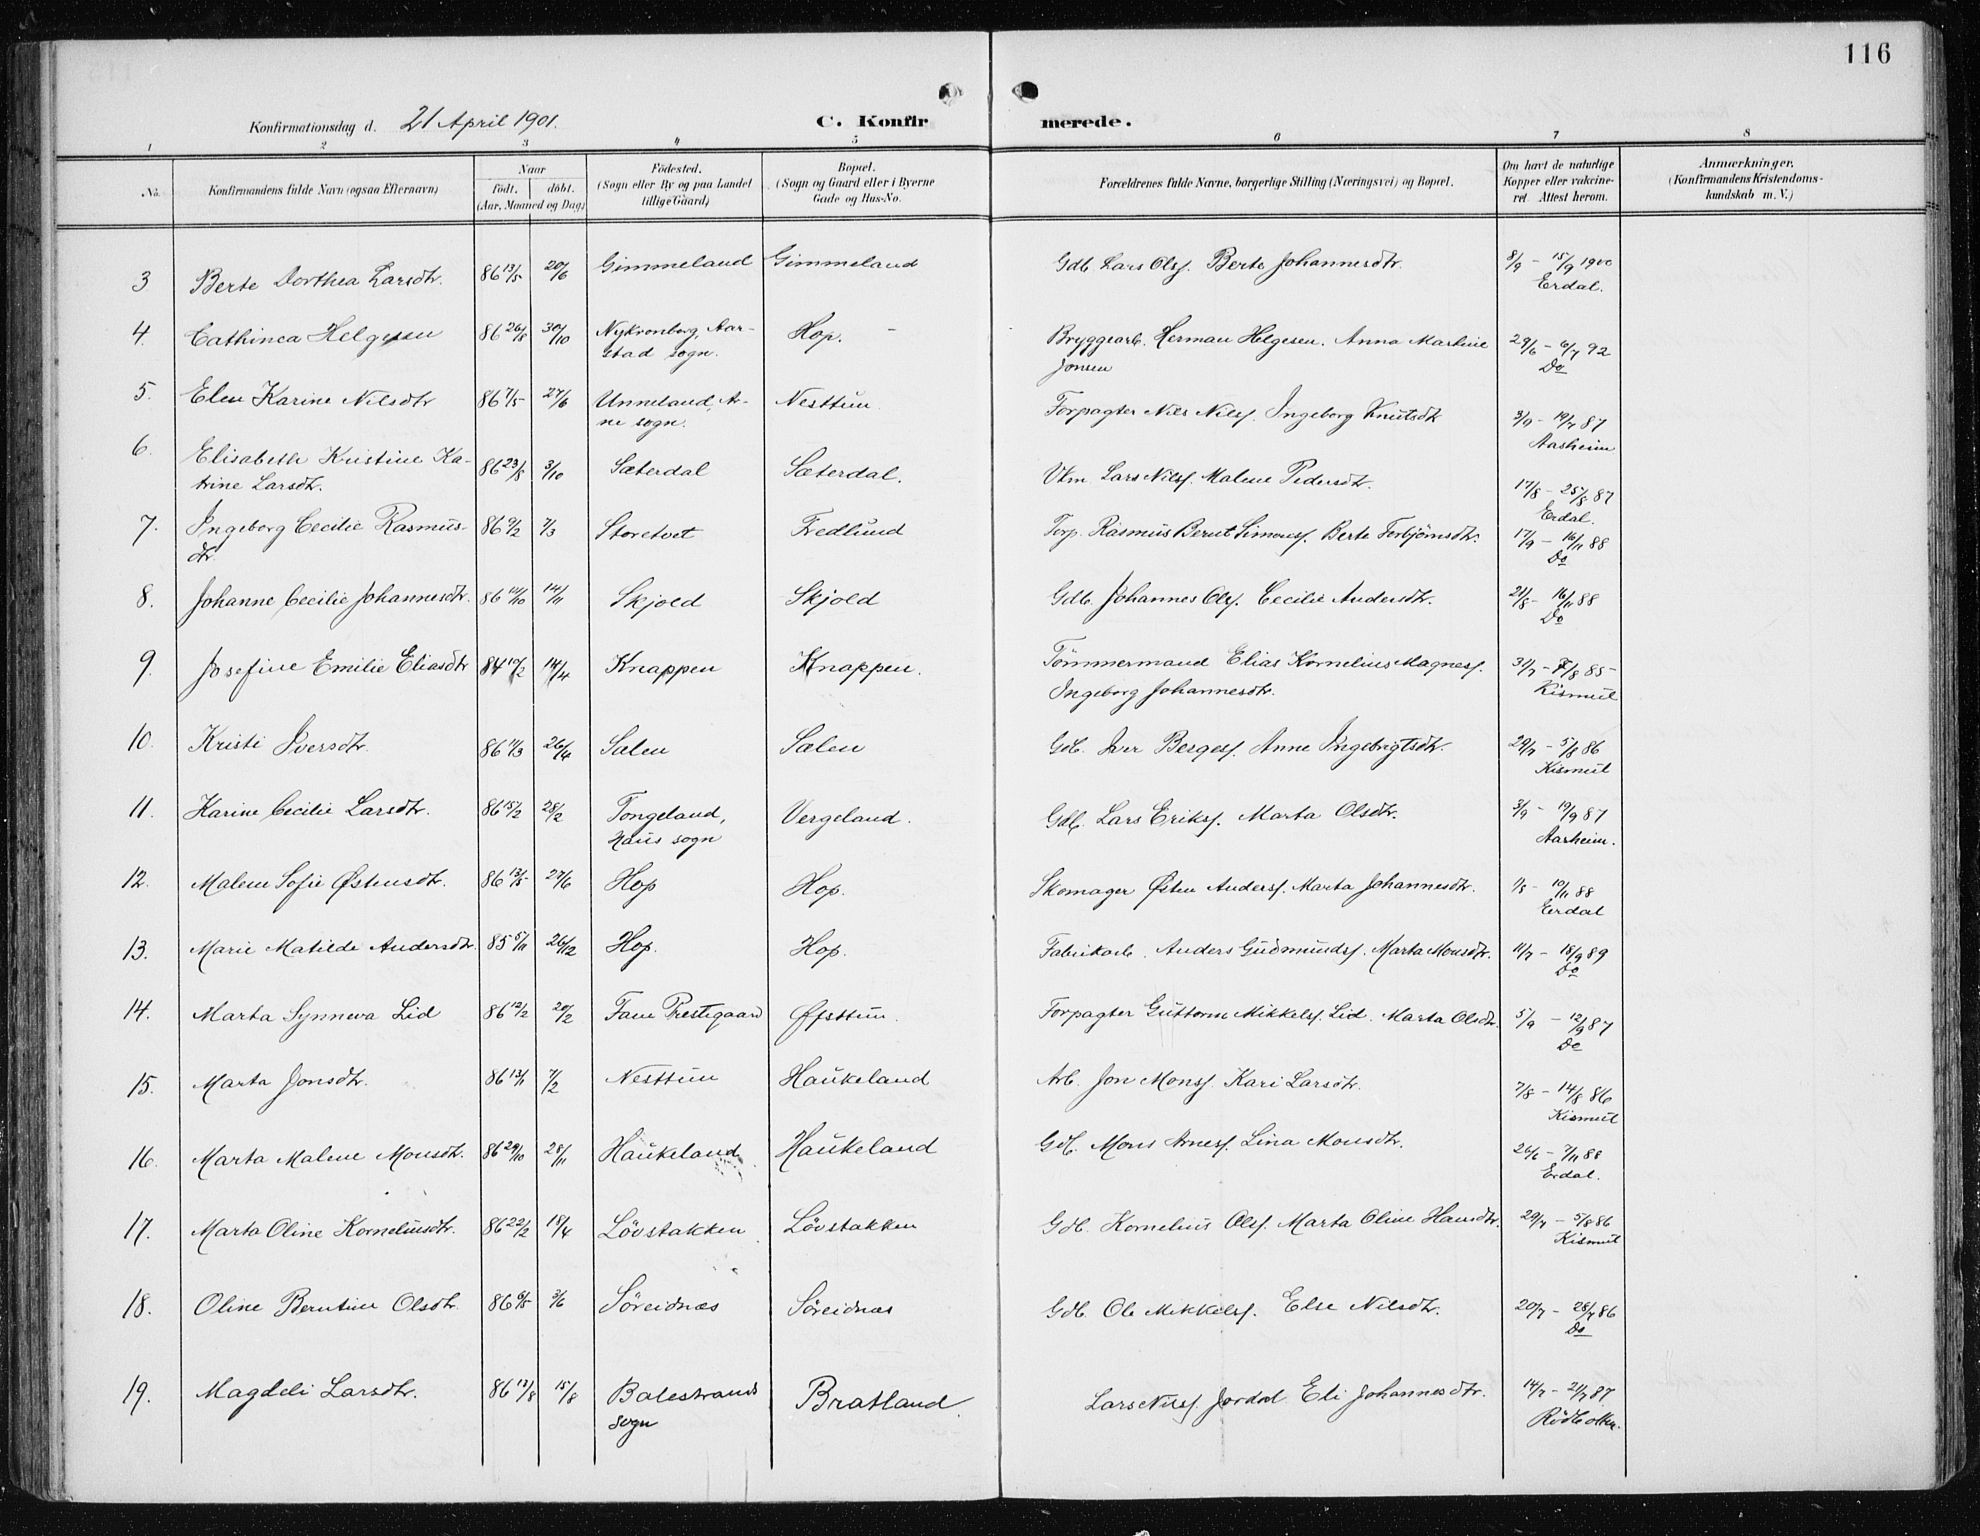 116
Konfirmationsdag d. 21 April 1901.
C. Konfirmerede.
1 2 3 4 5 6 7 8
No. Konfirmandens fulde Navn (ogsaa Efternavn)
Naar født. døbt. (Aar, Maaned og Dag)
Fødested. (Sogn eller By og paa Landet tillige Gaard)
Bopæl. (Sogn og Gaard eller i Byerne Gade og Hus-No.
Forældrenes fulde Navne, borgerlige Stilling (Næringsvei) og Bopæl.
Om havt de naturlige Kopper eller vakcineret. Attest herom.
Anmærkninger. (Konfirmandens Kristendomskundskab m. V.)
3 Berte Dorthea Larsdtr. 86 13/5 20/6 Gimmeland Gimmeland Gdb. Lars Olsf. Berte Johannesdtr. 8/9 - 15/9 1900 Erdal.
4. Cathinca Helgesen 86 26/8 30/10 Nykronborg, Aarstad sogn. Hop. Bryggearb. Herman Helgesen. Anna Martine Jonsen 29/6 - 6/7 92 Do
5. Elen Karine Nilsdtr 86 7/5 27/6 Unneland, Arne sogn. Nesttun. Forpagter Nils Nilsf. Ingeborg Knutsdtr 3/9 - 19/7 87 Aasheim
6. Elisabeth Kristine Katrine Larsdtr. 86 23/8 3/10 Sæterdal Sæterdal. Lars Nilsf. Malene Pedersdtr. 17/8 - 25/8 87 Erdal.
7. Ingeborg Cecilie Rasmusdtr. 86 9/2 7/3 Storetvet Fredlund Forp. Rasmus Bernt Simonsf. Berte Torbjörnsdtr. 17/9 - 16/11 88 Do
8. Johanne Cecilie Johannesdtr. 86 14/11 Skjold Skjold Gdb. Johannes Olsf. Cecilie Andersdtr. 21/8 - 16/11 88 Do
9. Josefine Emilie Eliasdtr 84 10/2 14/4 Knappen Knappen. Tömmermand Elias Kornelius Magnesf. Ingeborg Johannesdtr. 31/7 - 85 Kismul
10. Kristi Iversdtr. 86 11/3 26/4 Sælen Sælen Gdb. Iver Bergesf. Anne Ingebrigtsdtr. 29/7 - 5/8 86 Kismul
11. Karine Cecilie Larsdtr. 86 15/2 28/2 Tongeland, Haus sogn Vergeland. Gdb. Lars Eriksf. Marta Olsdtr. 3/9 - 19/9 87 Aasheim.
12. Malene Sofie Østensdtr. 86 13/5 27/6 Hop Hop. Skomager Østen Andersf. Marta Johannesdtr. 1/5 - 10/11 88 Eerdal
13. Marie Matilde Andersdtr. 85 5/11 26/12 Hop. Hop. Fabrikarb. Anders Gudmundsf. Marta Monsdtr. 11/7 - 18/9 89 Do
14. Marta Synneva Lid 86 12/2 20/2 Fane Prestegaard Øfsttun. Forpagter Guttorm Mikkelsf. Lid. Marta Olsdtr. 5/9 - 12/9 87 Do
15. Marta Jonsdtr. 86 13/1 7/2 Nesttun Haukeland Arb. Jon Monsf Kari Larsdtr. 7/8 - 14/8 86 Kismul
16. Marta Malene Monsdtr. 86 29/10 28/11 Haukeland Haukeland Gdb. Mons Arnesf. Lina Monsdtr. 26/6 - 7/11 88 Erdal.
17. Marta Oline Korneliusdtr. 86 22/2 18/4 Lövstakken Lövstakken Gdb. Kornelius Olsf. Marta Oline Hansdtr. 29/7 - 5/8 86 Kismul
18. Oline Bertine Olsdtr. 86 6/5 3/6 Söreidnæs Söreidnæs Gdb. Ole Mikkelsf. Else Nilsdtr. 20/7 - 28/7 86 Do
19. Magdeli Larsdtr. 86 12/8 15/8 Balestrands sogn Bratland. Lars Nilsf Jordal Eli Johannesdtr. 14/7 - 21/7 87